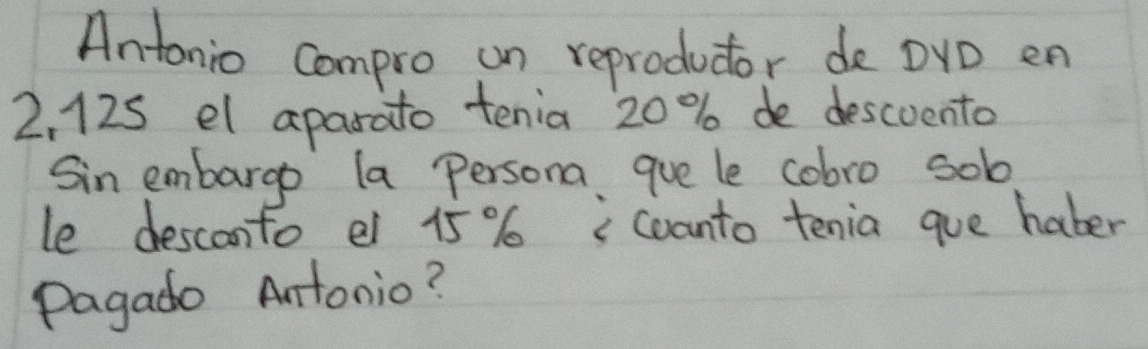 Antonio Compro un reproductor de DVD en
2,125 el aparato tenia 20% de descuento
Sin embargo la Persona que le cobro Sob
le desconto el 15% ¿Cuanto tenia que haber
Pagado Antonio?